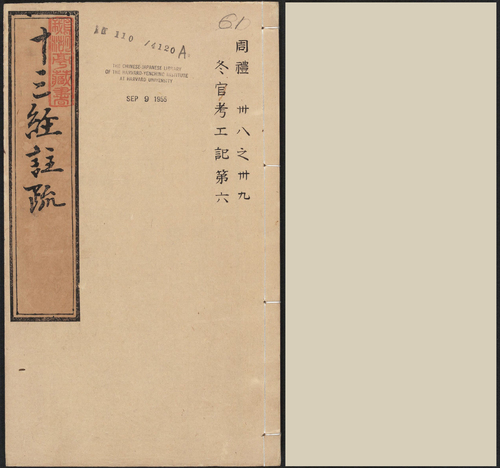 61
110 /4120A
THE CHINESE-JAPANESE LIBRARY
OF THE HARVARD-YENCHING INSTITUTE
AT HARVARD UNIVERSITY
SEP 9 1955
周禮 卅八之卅九
冬官考工記第六
十三經註疏